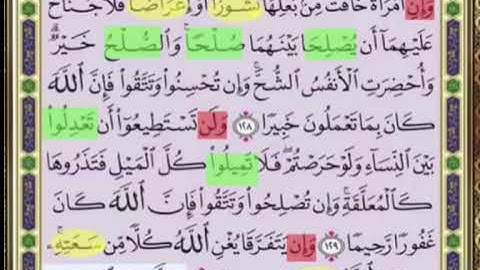 وَإِنِ ٱمْرَأَةٌ خَافَتْ مِنۢ بَعْلِهَا نُشُوزًا أَوْ إِعْرَاضًا فَلَا جُنَاحَ
عَلَيْهِمَآ أَن يُصْلِحَا بَيْنَهُمَا صُلْحًا ۚ وَٱلصُّلْحُ خَيْرٌ ۗ
وَأُحْضِرَتِ ٱلْأَنفُسُ ٱلشُّحَّ ۚ وَإِن تُحْسِنُوا۟ وَتَتَّقُوا۟ فَإِنَّ ٱللَّهَ
كَانَ بِمَا تَعْمَلُونَ خَبِيرًا ١٢٨ وَلَن تَسْتَطِيعُوٓا۟ أَن تَعْدِلُوا۟
بَيْنَ ٱلنِّسَآءِ وَلَوْ حَرَصْتُمْ ۖ فَلَا تَمِيلُوا۟ كُلَّ ٱلْمَيْلِ فَتَذَرُوهَا
كَٱلْمُعَلَّقَةِ ۚ وَإِن تُصْلِحُوا۟ وَتَتَّقُوا۟ فَإِنَّ ٱللَّهَ كَانَ
غَفُورًا رَّحِيمًا ١٢٩ وَإِن يَتَفَرَّقَا يُغْنِ ٱللَّهُ كُلًّا مِّن سَعَتِهِۦ ۚ